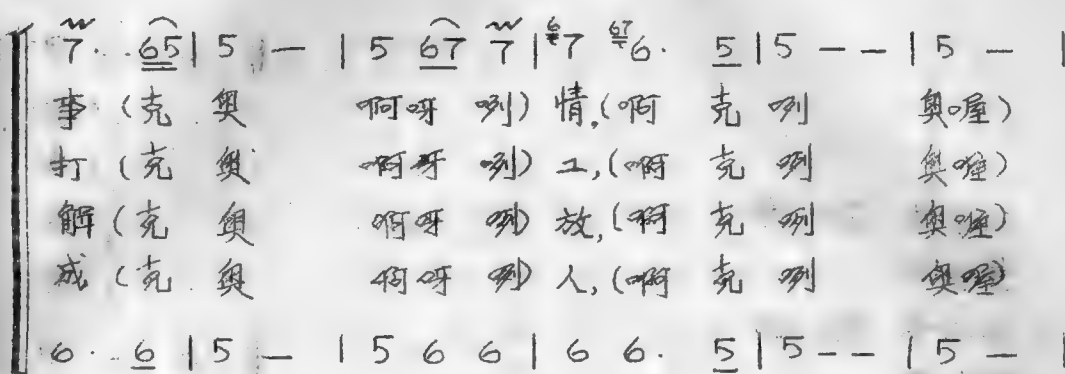 7· 65 | 5 — | 5 67 7 | 67 676· 5 | 5 — — | 5 — |
事(克 奥 啊呀 咧)情,(啊 克 咧 奥喔)
打(克 奥 啊呀 咧)工,(啊 克 咧 奥喔)
解(克 奥 啊呀 咧)放,(啊 克 咧 奥喔)
成(克 奥 啊呀 咧)人,(啊 克 咧 奥喔)
6· 6 | 5 — | 5 6 6 | 6 6· 5 | 5 — — | 5 — |